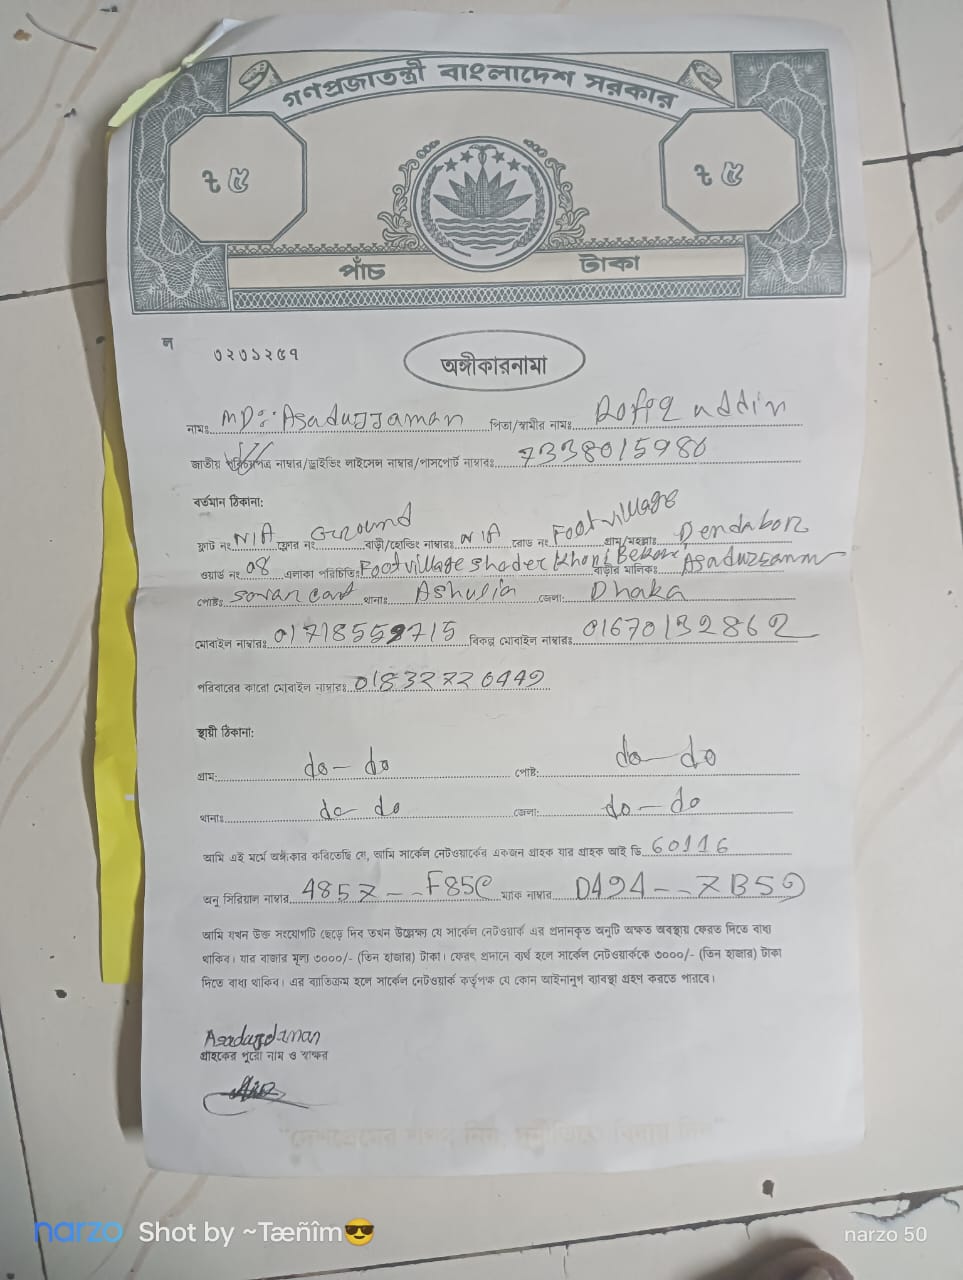 গণপ্রজাতন্ত্রী বাংলাদেশ সরকার
৳ ৫ ৳ ৫
পাঁচ টাকা
ল ০২০১২৫৭
অঙ্গীকারনামা
নামঃ MD: Asadujjaman পিতা/স্বামীর নামঃ Rofiq uddin
জাতীয় পরিচয়পত্র নাম্বার/ড্রাইভিং লাইসেন্স নাম্বার/পাসপোর্ট নাম্বারঃ 7338015980
বর্তমান ঠিকানা:
ফ্লাট নং N/A ফ্লোর নং Ground বাড়ী/হোল্ডিং নাম্বারঃ N/A রোড নং Foot village গ্রাম/মহল্লাঃ Dendabor
ওয়ার্ড নং 08 এলাকা পরিচিতিঃ Foot village shader বাড়ীর মালিকঃ
পোষ্টঃ থানাঃ Ashulia জেলা: Dhaka
মোবাইল নাম্বারঃ 01718559715 বিকল্প মোবাইল নাম্বারঃ 01670132862
পরিবারের কারো মোবাইল নাম্বারঃ
স্থায়ী ঠিকানা:
গ্রাম: do - do পোষ্ট: do - do
থানাঃ do do জেলা: do - do
আমি এই মর্মে অঙ্গীকার করিতেছি যে, আমি সার্কেল নেটওয়ার্কের একজন গ্রাহক যার গ্রাহক আই ডি 60116
অনু সিরিয়াল নাম্বার 4857 -- F85C ম্যাক নাম্বার D494 -- 7B59
আমি যখন উক্ত সংযোগটি ছেড়ে দিব তখন উল্লেক্ষ্য যে সার্কেল নেটওয়ার্ক এর প্রদানকৃত অনুটি অক্ষত অবস্থায় ফেরত দিতে বাধ্য
থাকিব। যার বাজার মূল্য ৩০০০/- (তিন হাজার) টাকা। ফেরৎ প্রদানে ব্যর্থ হলে সার্কেল নেটওয়ার্ককে ৩০০০/- (তিন হাজার) টাকা
দিতে বাধ্য থাকিব। এর ব্যতিক্রম হলে সার্কেল নেটওয়ার্ক কর্তৃপক্ষ যে কোন আইনানুগ ব্যবস্থা গ্রহণ করতে পারবে।
গ্রাহকের পুরো নাম ও স্বাক্ষর
narzo Shot by ~Tæñîm😎 narzo 50